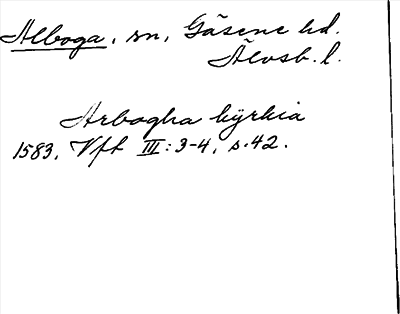 Alboga, sn, Gäsene hd.
Älvsb. l.
Arbogha kyrkia
1583, Vft III: 3-4, s. 42.